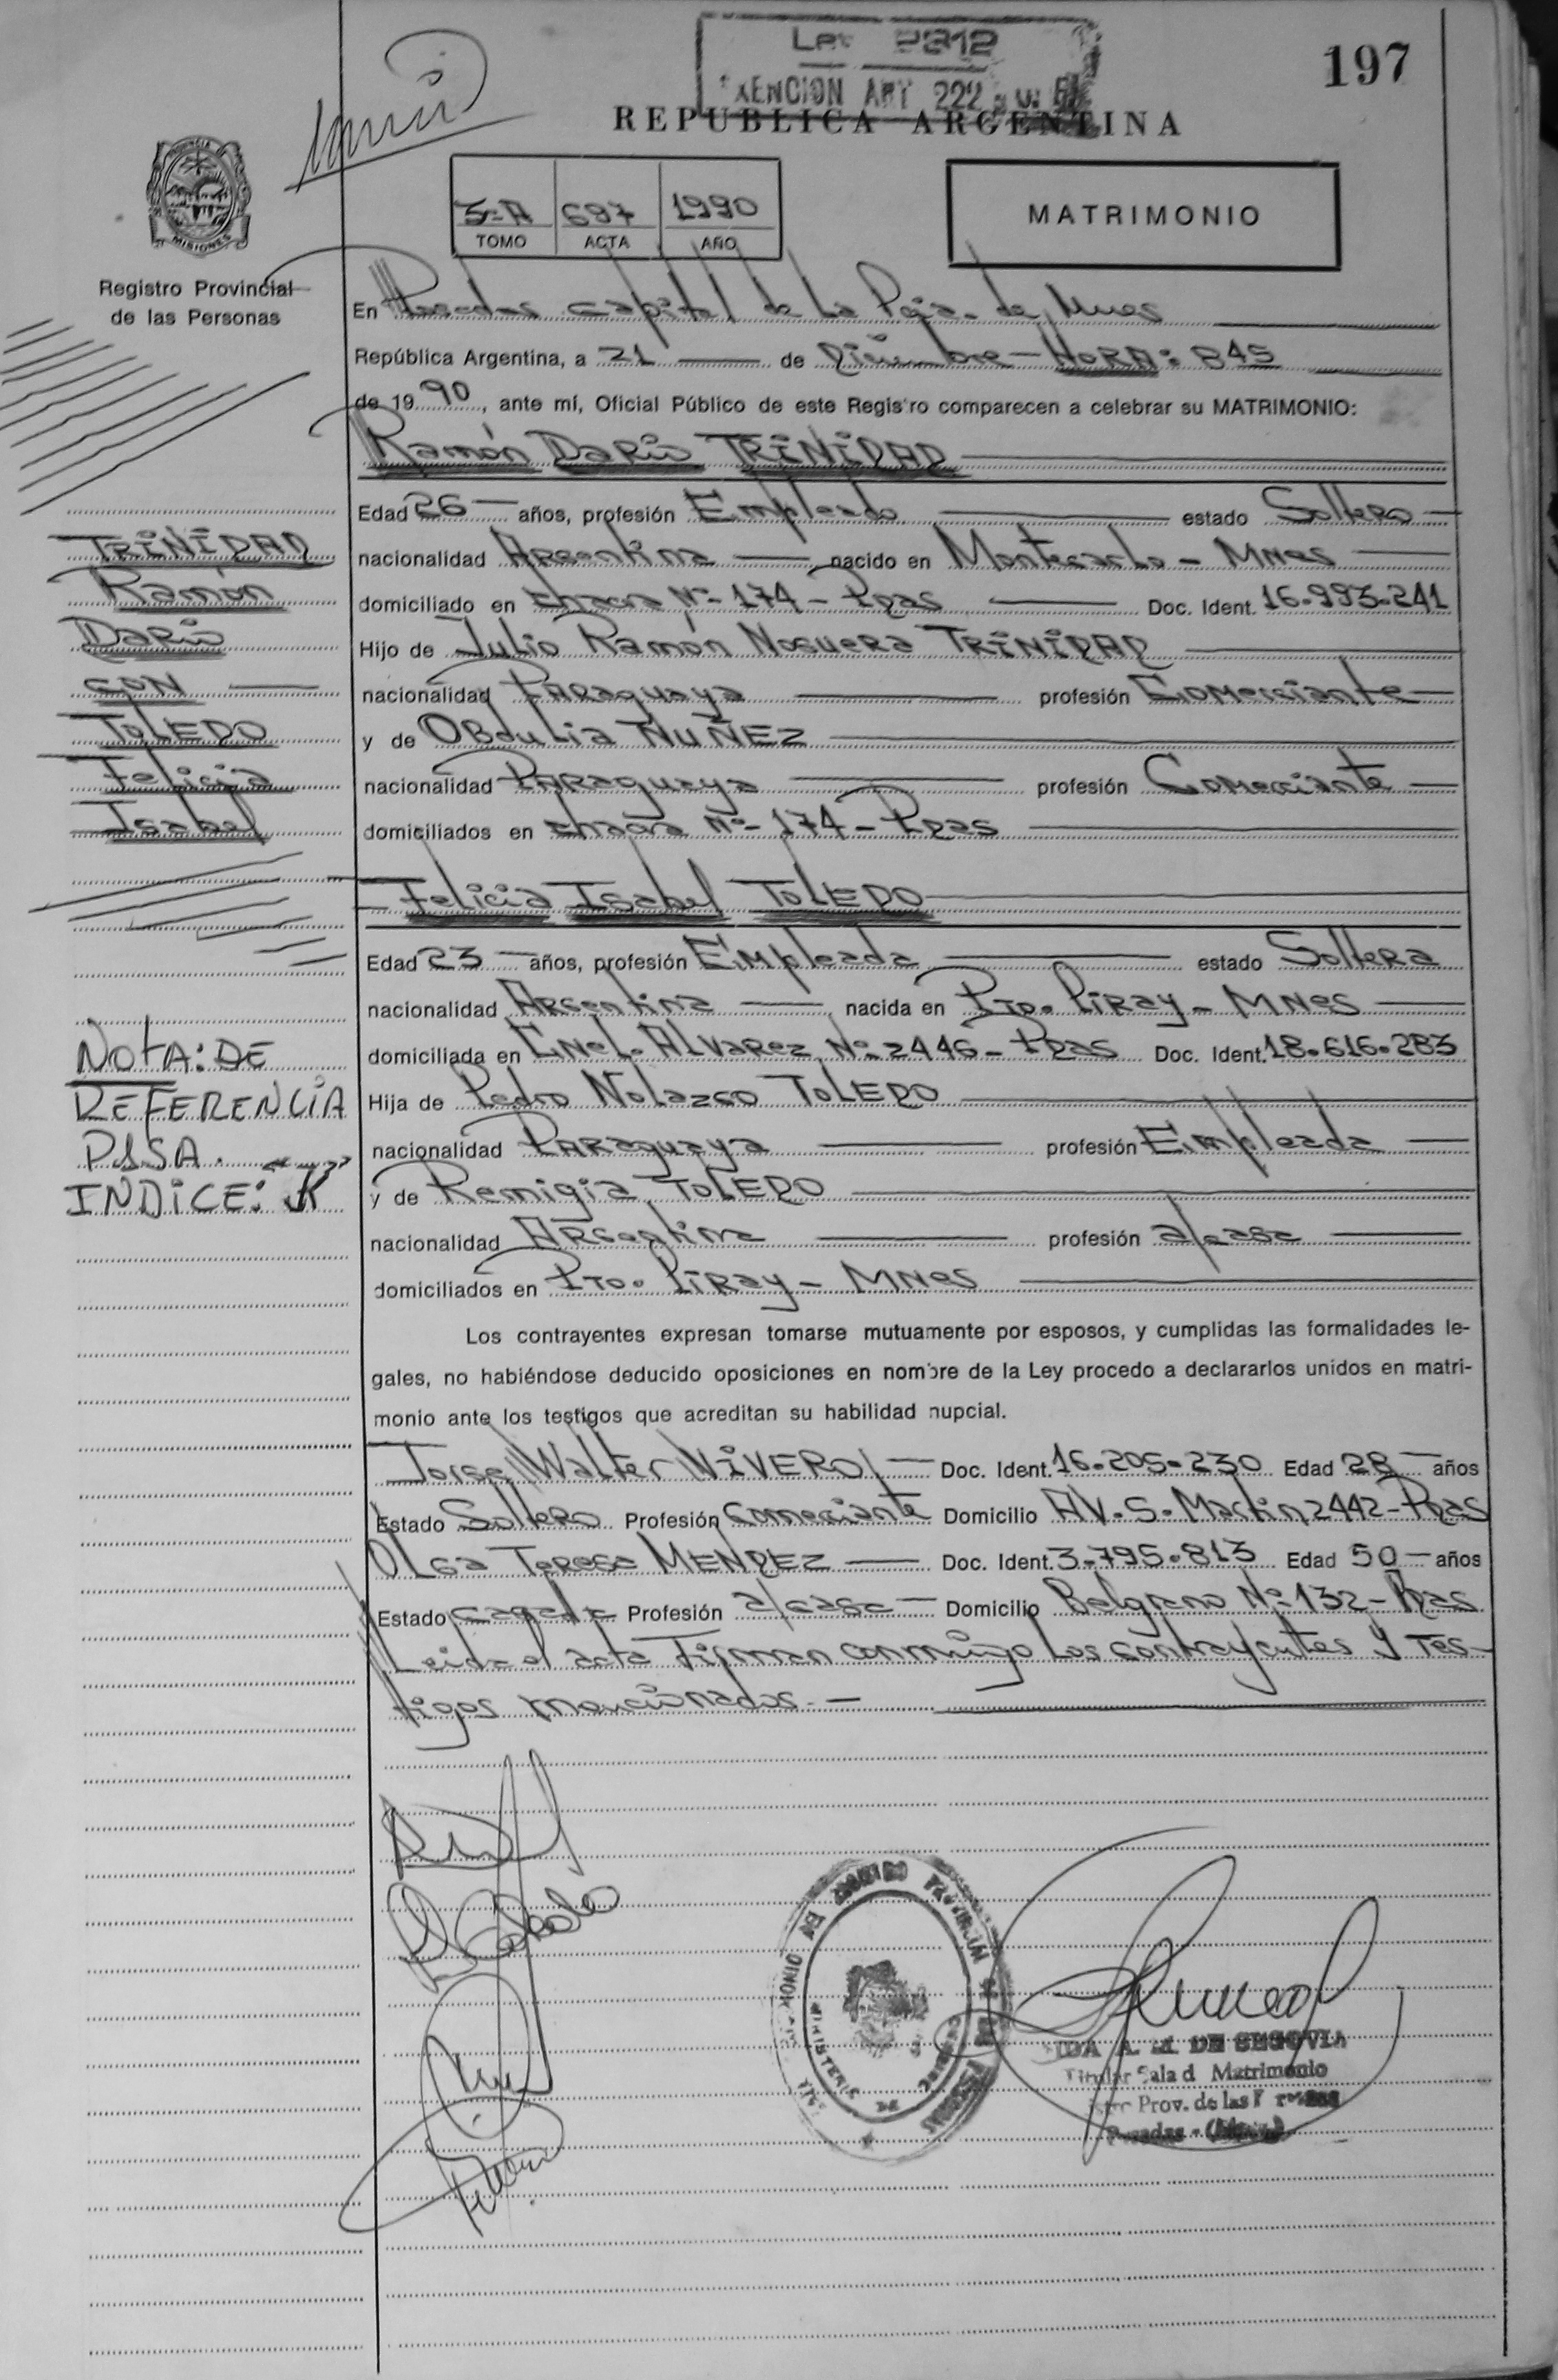 Ley 2312
EXENCION ART 222
197
REPUBLICA ARGENTINA
MISIONES
Registro Provincial
de las Personas
3-A 697 1990
TOMO ACTA AÑO
MATRIMONIO
En Posadas capital de la Pcia. de Mnes
República Argentina, a 21 de Diciembre - HORA: 845
de 1990, ante mí, Oficial Público de este Registro comparecen a celebrar su MATRIMONIO:
Ramón Darío TRINIDAD
Edad 26 años, profesión Empleado estado Soltero
nacionalidad Argentina nacido en Montecarlo - Mnes
domiciliado en chacra Nº 174 - Pdas Doc. Ident. 16.993.241
Hijo de Julio Ramón Noguera TRINIDAD
nacionalidad Paraguaya profesión Comerciante
y de Obdulia NUÑEZ
nacionalidad Paraguaya profesión Comerciante
domiciliados en chacra Nº 174 - Pdas
TRINIDAD
Ramón
Darío
CON
TOLEDO
Felicia
Isabel
Felicia Isabel TOLEDO
Edad 23 años, profesión Empleada estado Soltera
nacionalidad Argentina nacida en Pto. Piray - Mnes
domiciliada en Cnel. Alvarez Nº 2446 - Pdas Doc. Ident. 18.616.283
Hija de Pedro Nolazco TOLEDO
nacionalidad Paraguaya profesión Empleada
y de Remigia TOLEDO
nacionalidad Argentina profesión a/casa
domiciliados en Pto. Piray - Mnes
NOTA: DE
REFERENCIA
PASA.
INDICE: "K"
Los contrayentes expresan tomarse mutuamente por esposos, y cumplidas las formalidades le-
gales, no habiéndose deducido oposiciones en nombre de la Ley procedo a declararlos unidos en matri-
monio ante los testigos que acreditan su habilidad nupcial.
Jorge Walter VIVERO Doc. Ident. 16.205.230 Edad 28 años
Estado Soltero Profesión Comerciante Domicilio AV. S. Martin 2442 - Pdas
Olga Teresa MENDEZ Doc. Ident. 3.795.813 Edad 50 años
Estado casada Profesión a/casa Domicilio Belgrano Nº 132 - Pdas
Leida el acta Firman conmigo Los contrayentes y tes-
tigos mencionados.-
A. M. DE SEGOVIA
Titular Sala d Matrimonio
Prov. de las
Posadas